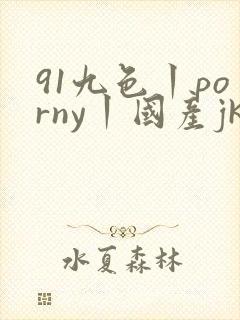 91九色丨po
rny丨國產jk
水夏森林